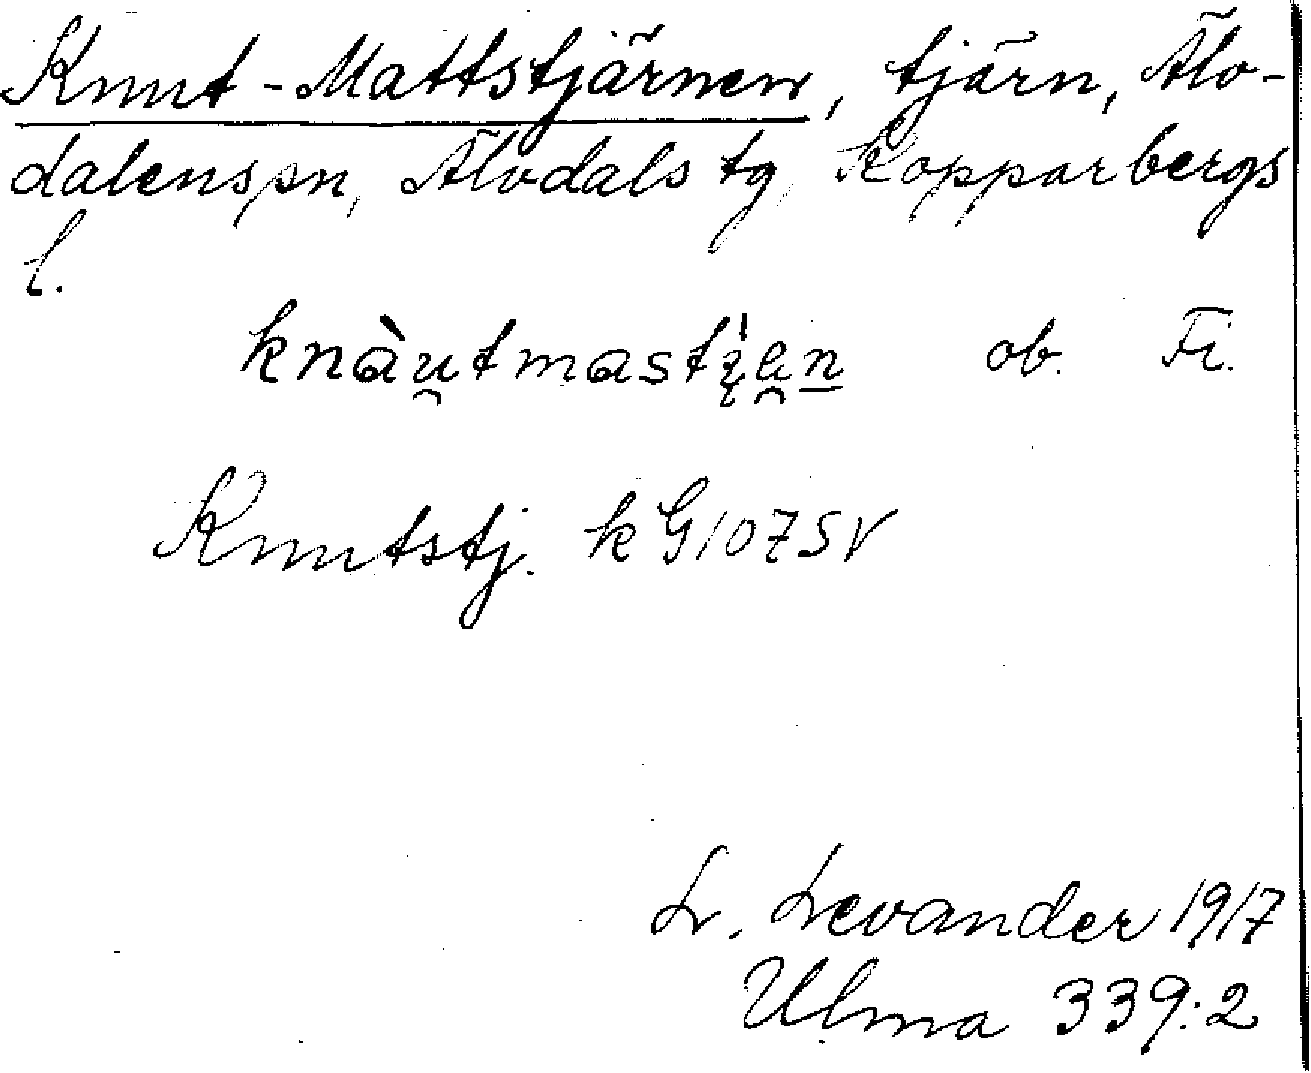 Knut-Mattstjärnen, tjärn, Älv-
dalens sn, Älvdals tg, Kopparbergs
l.
ob. Fi.
Knutstj. k G107SV
L. Levander 1917
Ulma 339:2